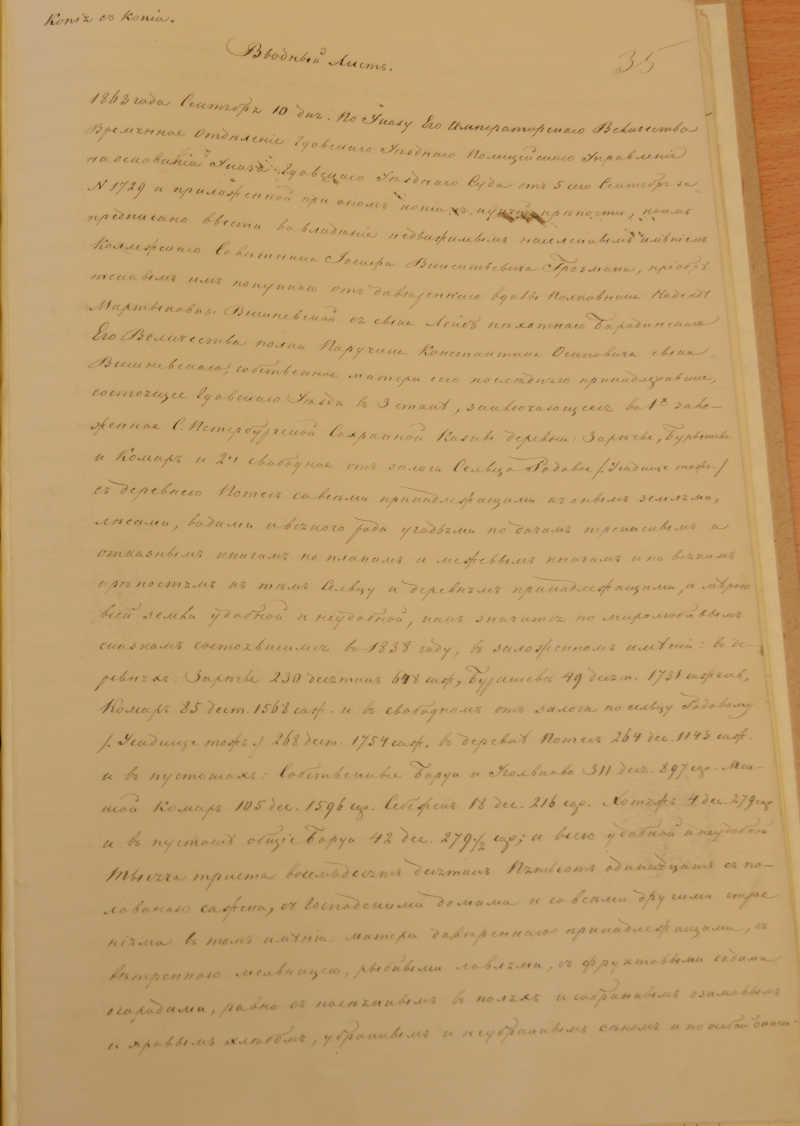 Копія съ Копіи.
35
Вводный Листъ.
1863 года Сентября 10 дня. По Указу Его Императорскаго Величества
Временное Отдѣленіе Гдовскаго Уѣзднаго Полицейскаго Управленія
на основаніи Указа Гдовскаго Уѣзднаго Суда отъ 5 сего Сентября за
N 1729 и приложенной при ономъ копіи съ купчей крѣпости, коимъ
предписано ввести во владѣніе недвижимымъ населеннымъ имѣніемъ
Коллежскаго Совѣтника Іосифа Викентьевича, пріобрѣ
теннымъ имъ покупкою отъ довѣреннаго вдовы Полковника Надежды
Мартыновны Вишневской сына Лейбъ пѣхотнаго Бородинскаго
Его Величества полка Поручика Константина Осиповича сына
Вишневскаго, собственное матери его послѣдняго принадлежавшее,
состоящее Гдовскаго Уѣзда въ 3 станѣ, заключающееся во 1хъ зало-
женное С. Петербургской Сохранной Казнѣ деревни: Зарѣчье,
и Комаръ и 2е свободное отъ залога Сельцо Радовье /Усадище тожъ/
съ деревнею Потескъ со всѣми принадлежащими къ онымъ землями,
лѣсами, водами и всякаго рода угодьями по дачамъ писцовымъ и
отказнымъ книгамъ по планамъ и межевымъ книгамъ и по всякимъ
крѣпостямъ къ тѣмъ Сельцу и деревнямъ принадлежащими, а мѣрою
всей земли удобной и неудобной, какъ значится по миролюбивымъ
сказкамъ состоявшимся въ 1838 году, въ заложенномъ имѣніи: въ де-
ревняхъ: Зарѣчье 230 десятинъ 648 саж, 49 дес. 1731 саж.,
Комаръ 85 дест. 1568 саж. и въ свободномъ отъ залога по сельцу Радовому
/Усадище тожъ/ 268 дест. 1754 саж. въ деревнѣ Потескъ 264 дес. 1143 саж.
и въ пустошахъ: Собственныя Баруи и 311 дес. 897 саж.
Комаръ 105 дес. 1596 саж. 18 дес. 216 саж. 4 дес. 279 саж
и въ пустошѣ общіе Баруи 42 дес. 279½ саж; и всего удобной и неудобной
Тысяча триста восемьдесятъ десятинъ Пятьсотъ одинадцать съ по-
ловиною сажень, съ Господскими домами и со всѣми другими строе
ніями въ томъ имѣніи матери довѣреннаго принадлежащими, съ
вѣтренною мельницею, рыбными ловлями, съ фруктовыми садами
огородами, равно съ посѣяннымъ въ поляхъ и собраннымъ озимовымъ
и яровымъ хлѣбомъ, убраннымъ и неубраннымъ сѣномъ и